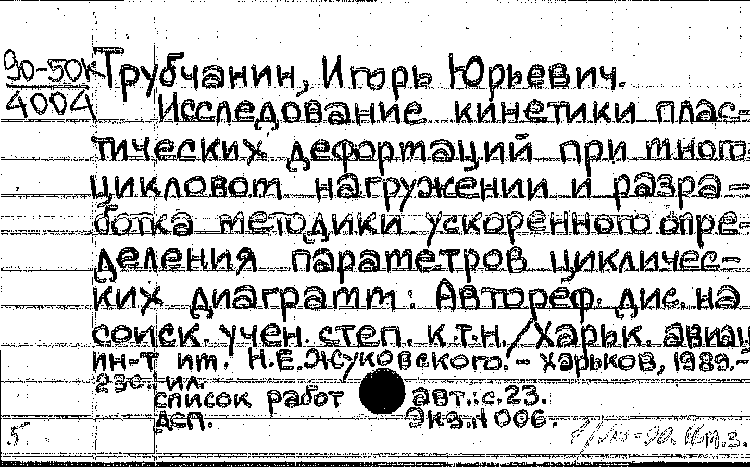 90-50к Трубчанин, Игорь Юрьевич.
4004 Исследование кинетики плас-
тических деформаций при много-
цикловом нагружении и разра-
ботка методики ускоренного опре-
деления параметров цикличес-
ких диаграмм: Автореф. дис. на
соиск. учен. степ. к.т.н. / Харьк. авиац.
ин-т им. Н.Е.Жуковского. - Харьков, 1989.-
230. ил.
список работ авт.: с. 23.
дсп. Экз.N 006.
5 м.з.